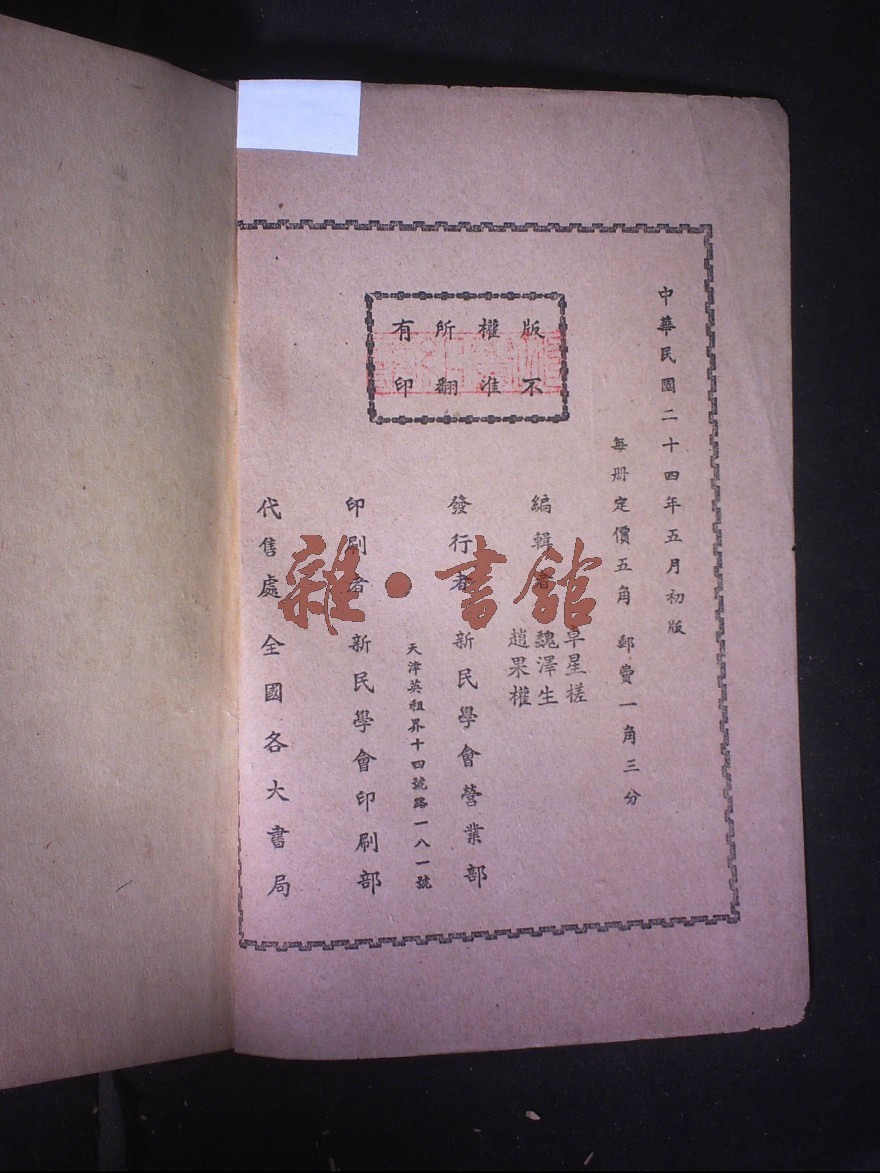 中華民國二十四年五月初版
每册定價五角 郵費一角三分
版權所有
不准翻印
編輯者
卓星槎
魏澤生
趙果權
發行者 新民學會營業部
天津英租界十四號路一八一號
印刷者 新民學會印刷部
代售處 全國各大書局
雜·書館